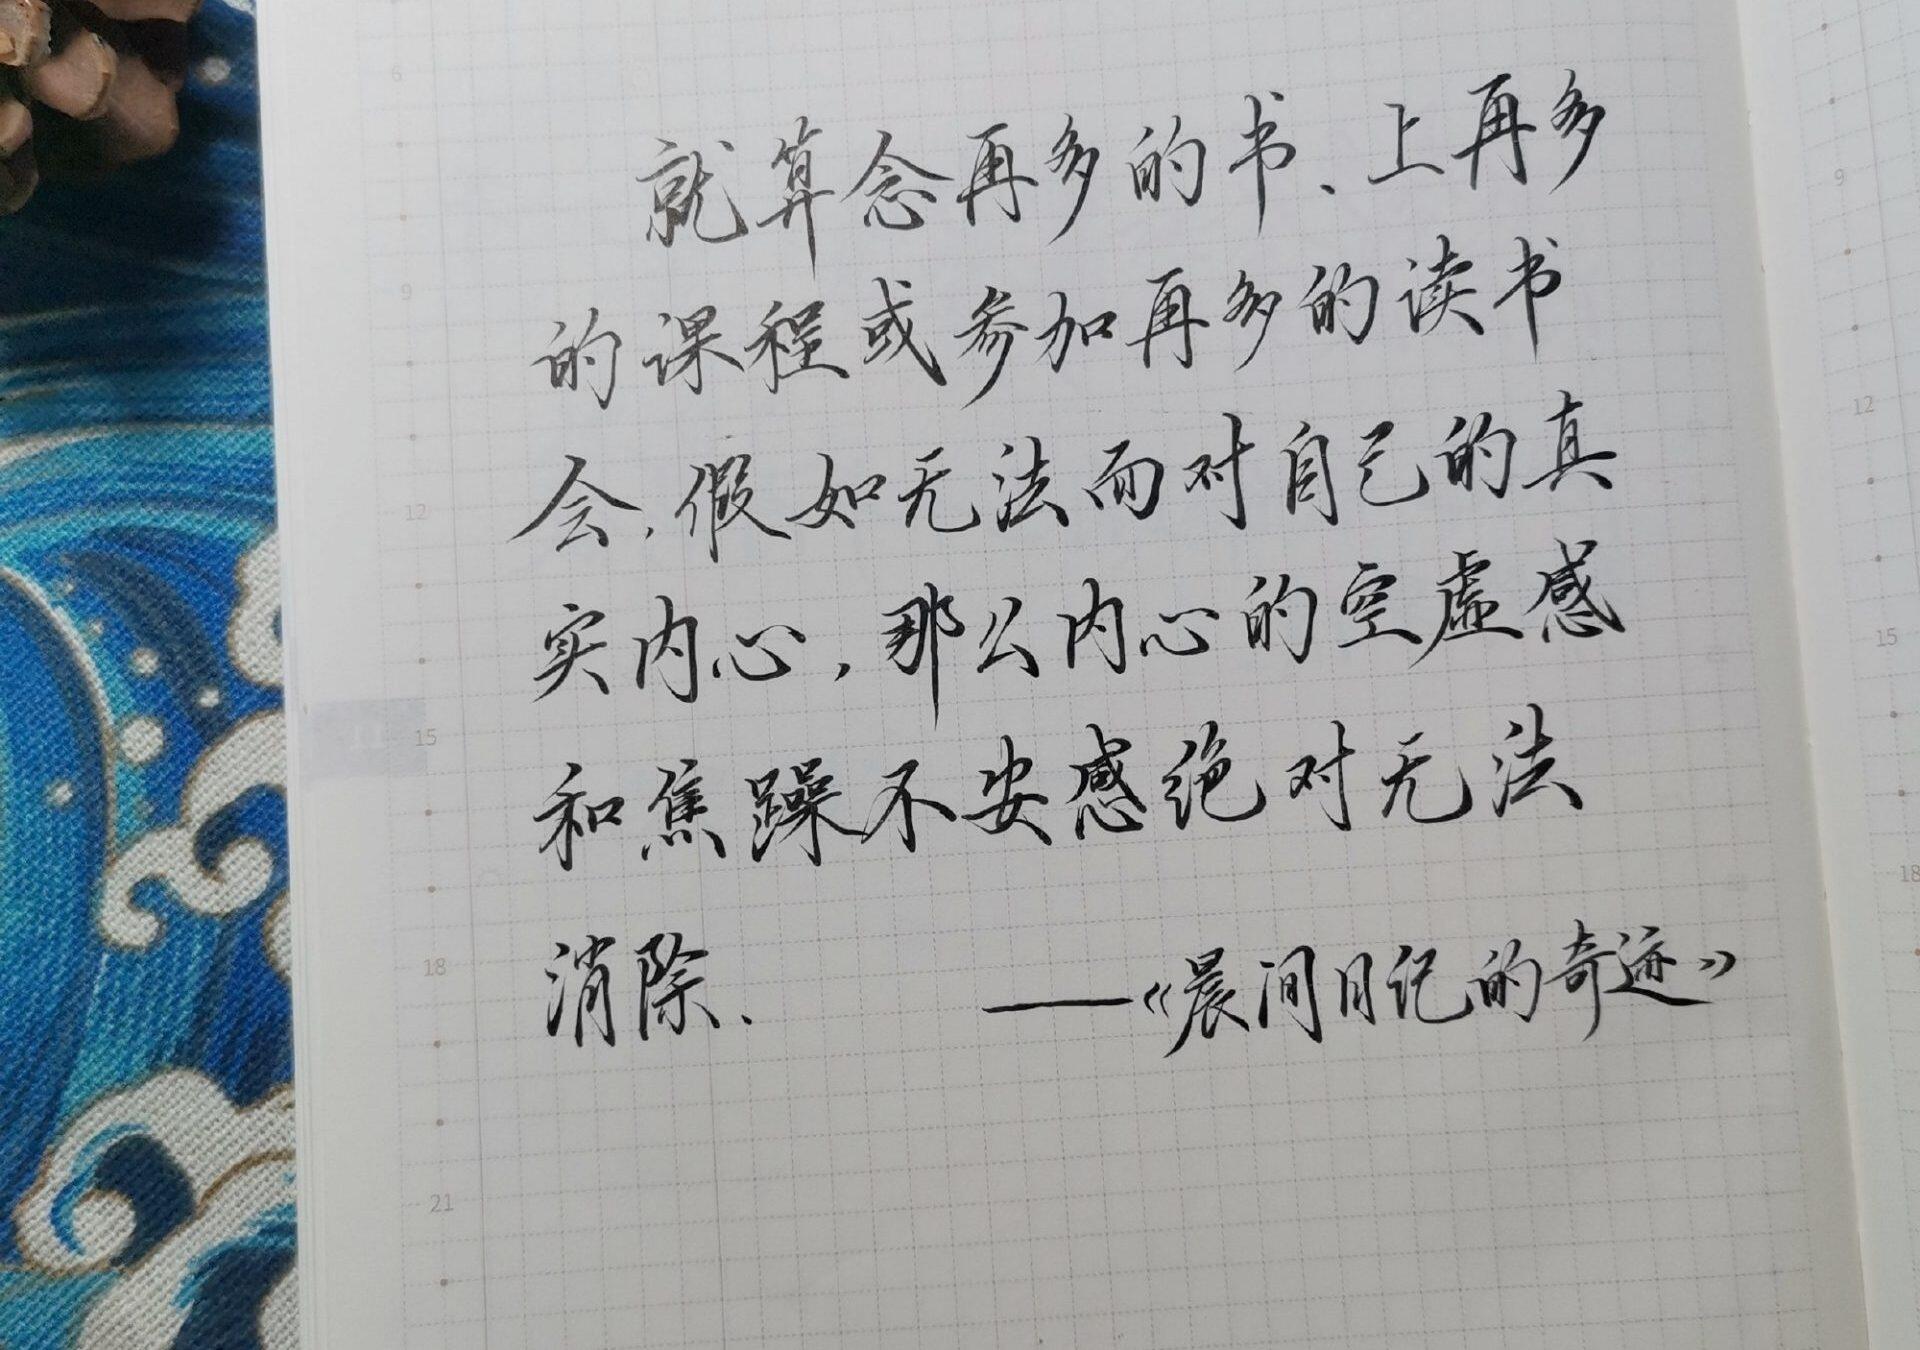 就算念再多的书、上再多
的课程或参加再多的读书
会,假如无法面对自己的真
实内心,那么内心的空虚感
和焦躁不安感绝对无法
消除.
——《晨间日记的奇迹》
6
9
12
15
18
21
11
9
12
15
18